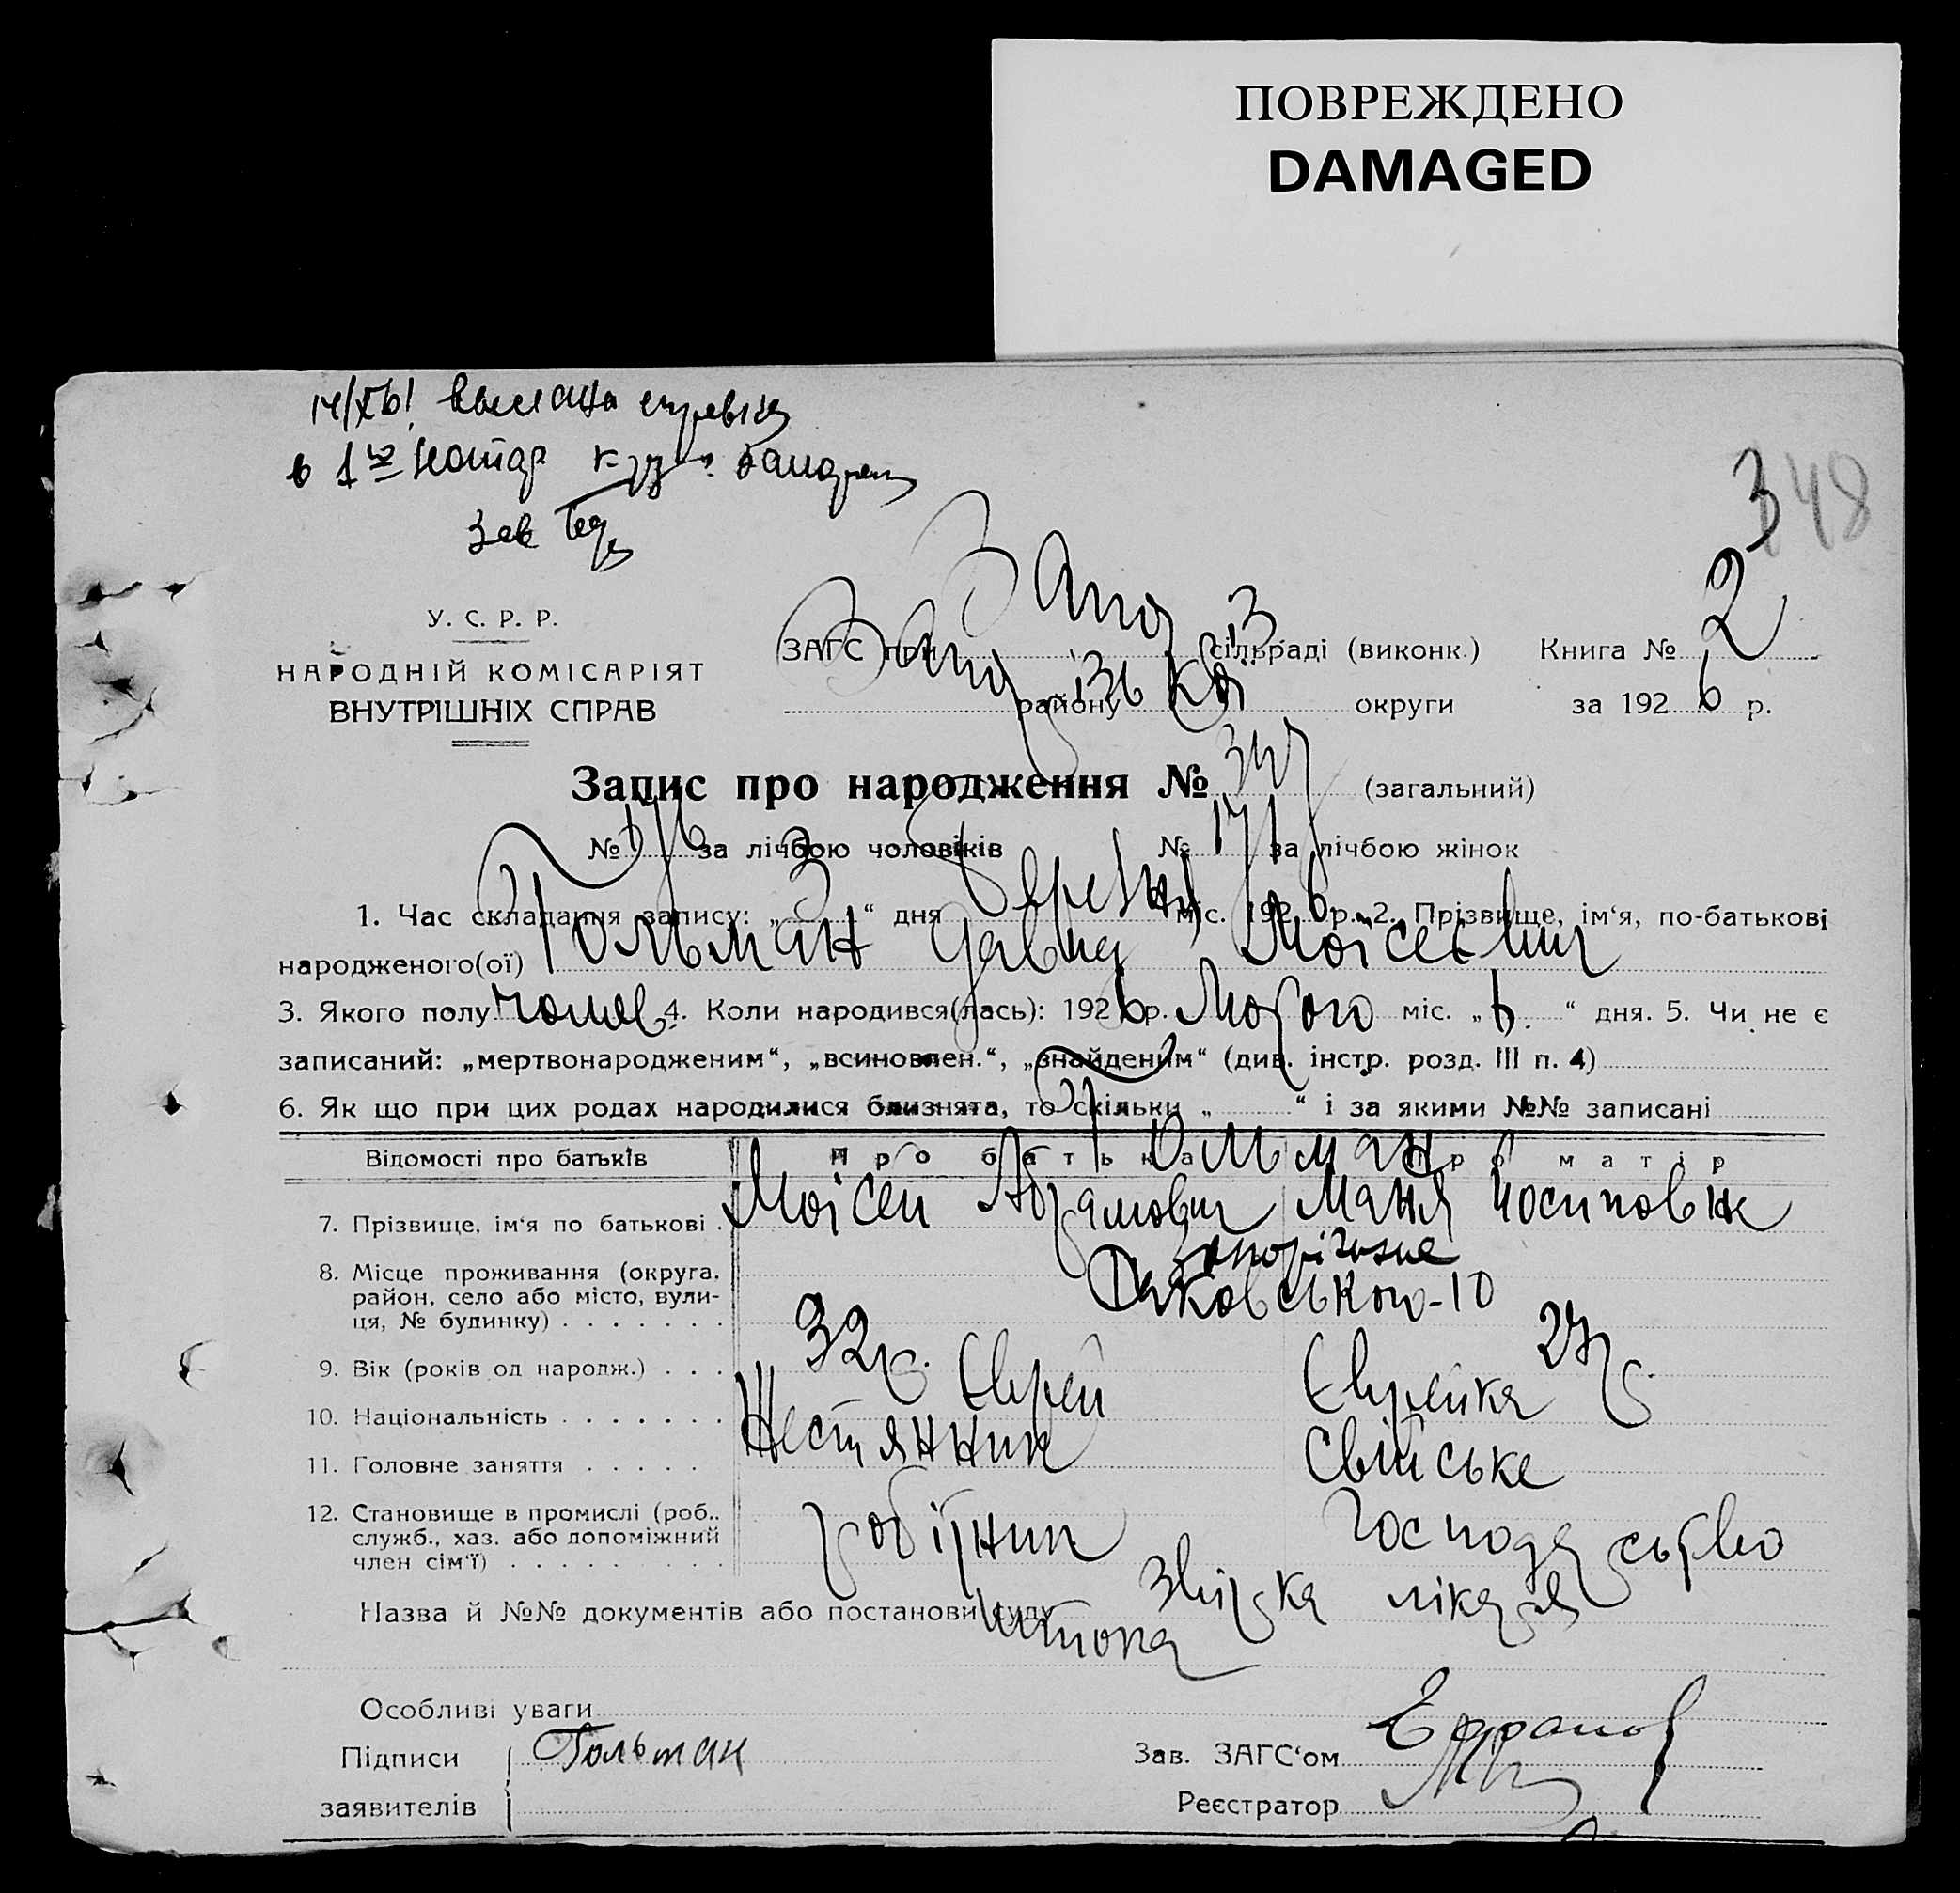 ПОВРЕЖДЕНО
DAMAGED
справка
в 1ю
Зав
348
У. С. Р. Р.
НАРОДНІЙ КОМІСАРІЯТ
ВНУТРІШНІХ СПРАВ
ЗАГС при сільраді (виконк.) Книга № 2
району округи за 1926 р.
Запис про народження № 347 (загальний)
№ 176 за лічбою чоловіків № 171 за лічбою жінок
1. Час складання запису: „3“ дня Березня міс. 1926 р. 2. Прізвище, ім‘я, по-батькові
народженого(ої) Гольман Давид Моісеєвич
3. Якого полу чолов. 4. Коли народився(лась): 1926 р. Лютого міс. „6.“ дня. 5. Чи не є
записаний: „мертвонародженим“, „всиновлен.“, „знайденим“ (див. інстр. розд. III п. 4)
6. Як що при цих родах народилися близнята, то скільки „ “ і за якими №№ записані
Відомості про батьків Про батька Про матір
Гольман
7. Прізвище, ім‘я по батькові Моісей Абрамович Маня Йосиповна
8. Місце проживання (округа, район, село або місто, вулиця, № будинку) Запоріжжя
Дяковського-10
9. Вік (років од народж.) 32 р. 27 р.
10. Національність Єврей Єврейка
11. Головне заняття Жестянник Свійське
12. Становище в промислі (роб., служб., хаз. або допоміжний член сім‘ї) робітник господарство
Назва й №№ документів або постанови суду Звістка лікаря
Особливі уваги
Підписи Гольман Зав. ЗАГС‘ом
заявителів Реєстратор